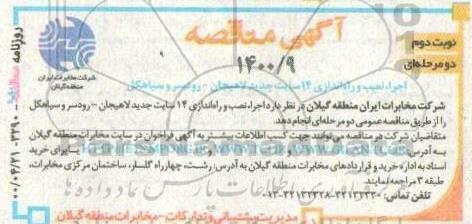 آگهی مناقصه
نوبت دوم
دو مرحله‌ای
۱۴۰۰/۹
شرکت مخابرات ایران
منطقه گیلان
اجرا، نصب و راه‌اندازی ۱۴ سایت جدید لاهیجان - رودسر و سیاهکل
شرکت مخابرات ایران منطقه گیلان در نظر دارد اجرا، نصب و راه‌اندازی ۱۴ سایت جدید لاهیجان - رودسر و سیاهکل
را از طریق مناقصه عمومی دو مرحله‌ای انجام دهد.
متقاضیان شرکت در مناقصه می‌توانند جهت کسب اطلاعات بیشتر به آگهی فراخوان در سایت مخابرات منطقه گیلان
به آدرس: یا برای خرید
اسناد به اداره خرید و قراردادهای مخابرات منطقه گیلان به آدرس: رشت، چهارراه گلسار، ساختمان مرکزی مخابرات،
طبقه ۳ مراجعه نمایند.
تلفن تماس:
مدیریت پشتیبانی و تدارکات - مخابرات منطقه گیلان
روزنامه
۰۰/۰۴/۲۱